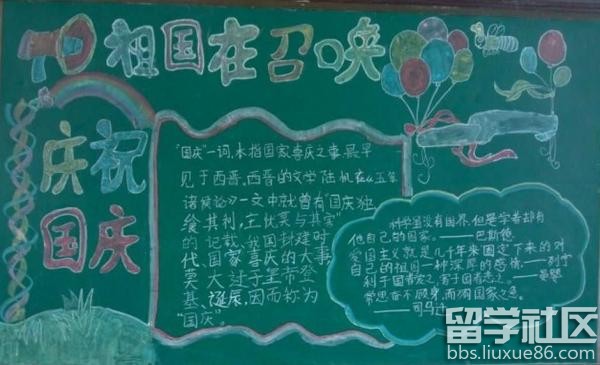 祖国在召唤
庆祝
国庆
"国庆"一词，本指国家喜庆之事，最早
见于西晋，西晋的文学陆机在《五等
诸侯论》一文中就曾有"国庆独
飨其利，主忧莫与其害"
的记载，我国封建时
代、国家喜庆的大事
莫大过于皇帝登
基、诞辰，因而称为
"国庆"。
科学虽没有国界，但是学者却有
他自己的国家。——巴斯德
爱国主义就是几千年来固定下来的对
自己的祖国一种深厚的感情。——列宁
利于国者爱之，害于国者恶之。
——晏婴
常思奋不顾身，而殉国家之急。
——司马迁
留学社区
bbs.liuxue86.com